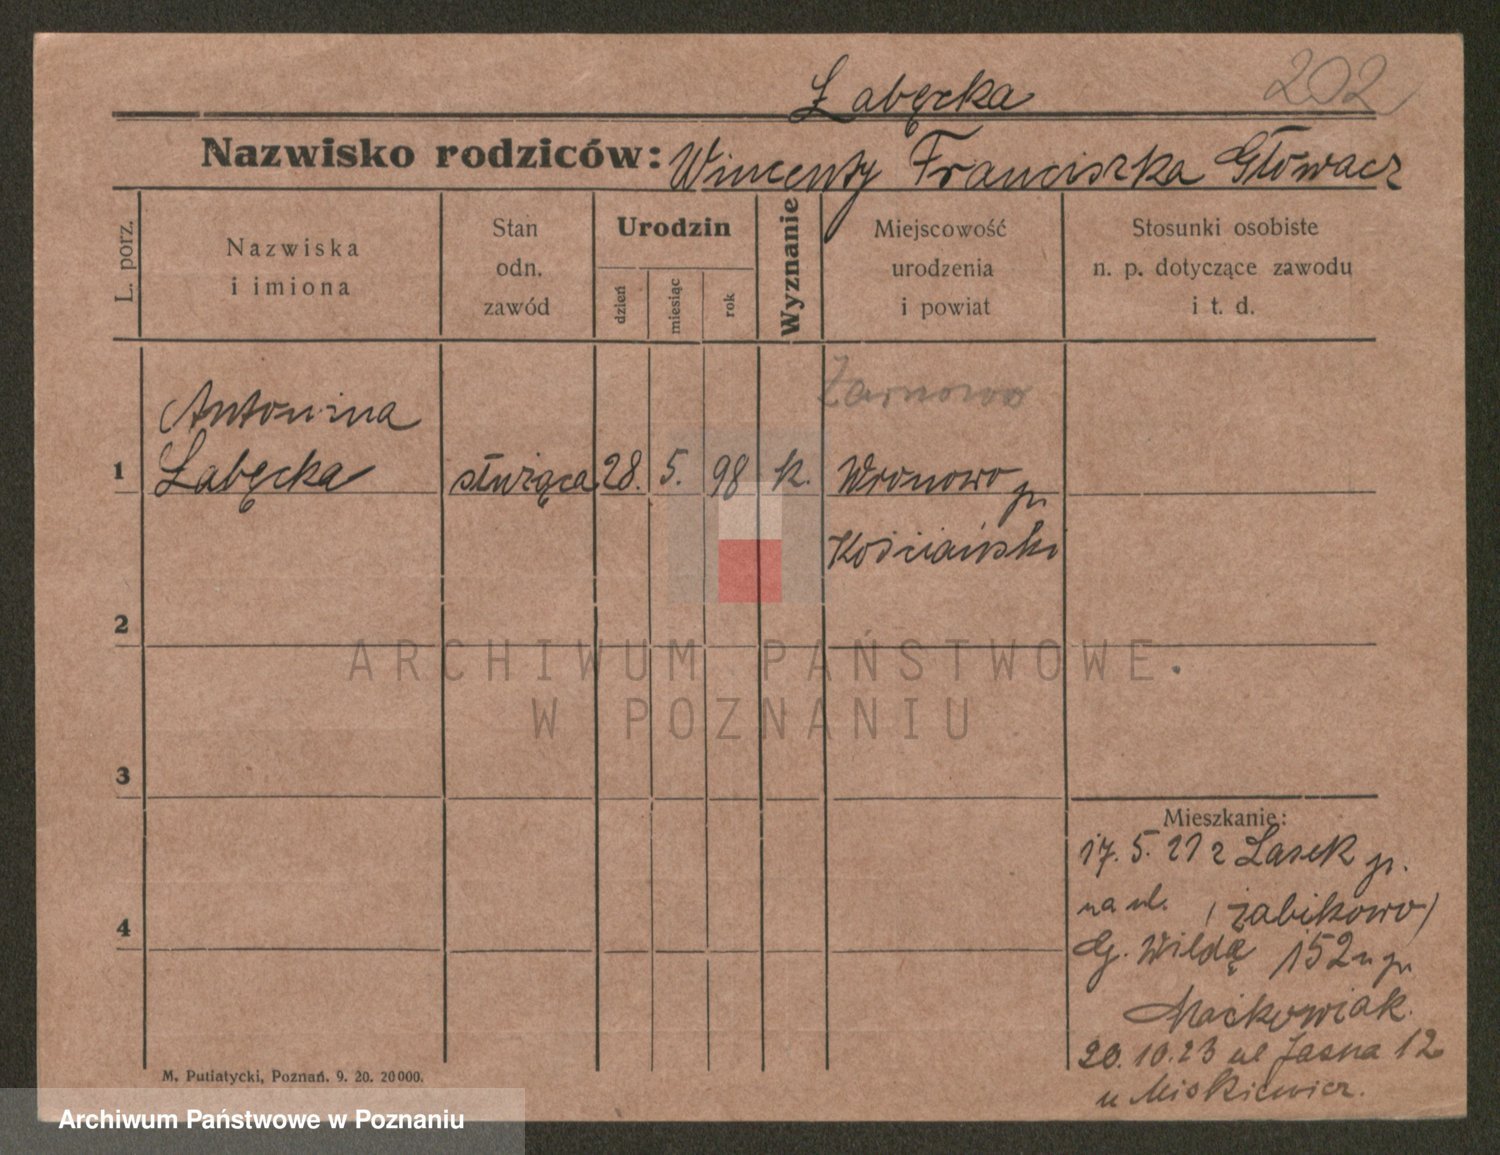 202
Łabęcka
Nazwisko rodziców: Wincenty Franciszka Głowacz
L. porz.
Nazwiska i imiona
Stan odn. zawód
Urodzin
dzień
miesiąc
rok
Wyznanie
Miejscowość urodzenia i powiat
Stosunki osobiste n. p. dotyczące zawodu i t. d.
Żarnowo
Antonina
1 Łabęcka służąca 28. 5. 98 k. Wronowo p.
Kościański
2
3
4
ARCHIWUM PAŃSTWOWE
W POZNANIU
Mieszkanie:
17. 5. 21 z Lasek p.
na ul. (Żabikowo)
G. Wildę 152 u p.
Maćkowiak.
20. 10. 23 ul Jasna 12
u Miskiewicz.
M. Putiatycki, Poznań. 9. 20. 20000.
Archiwum Państwowe w Poznaniu